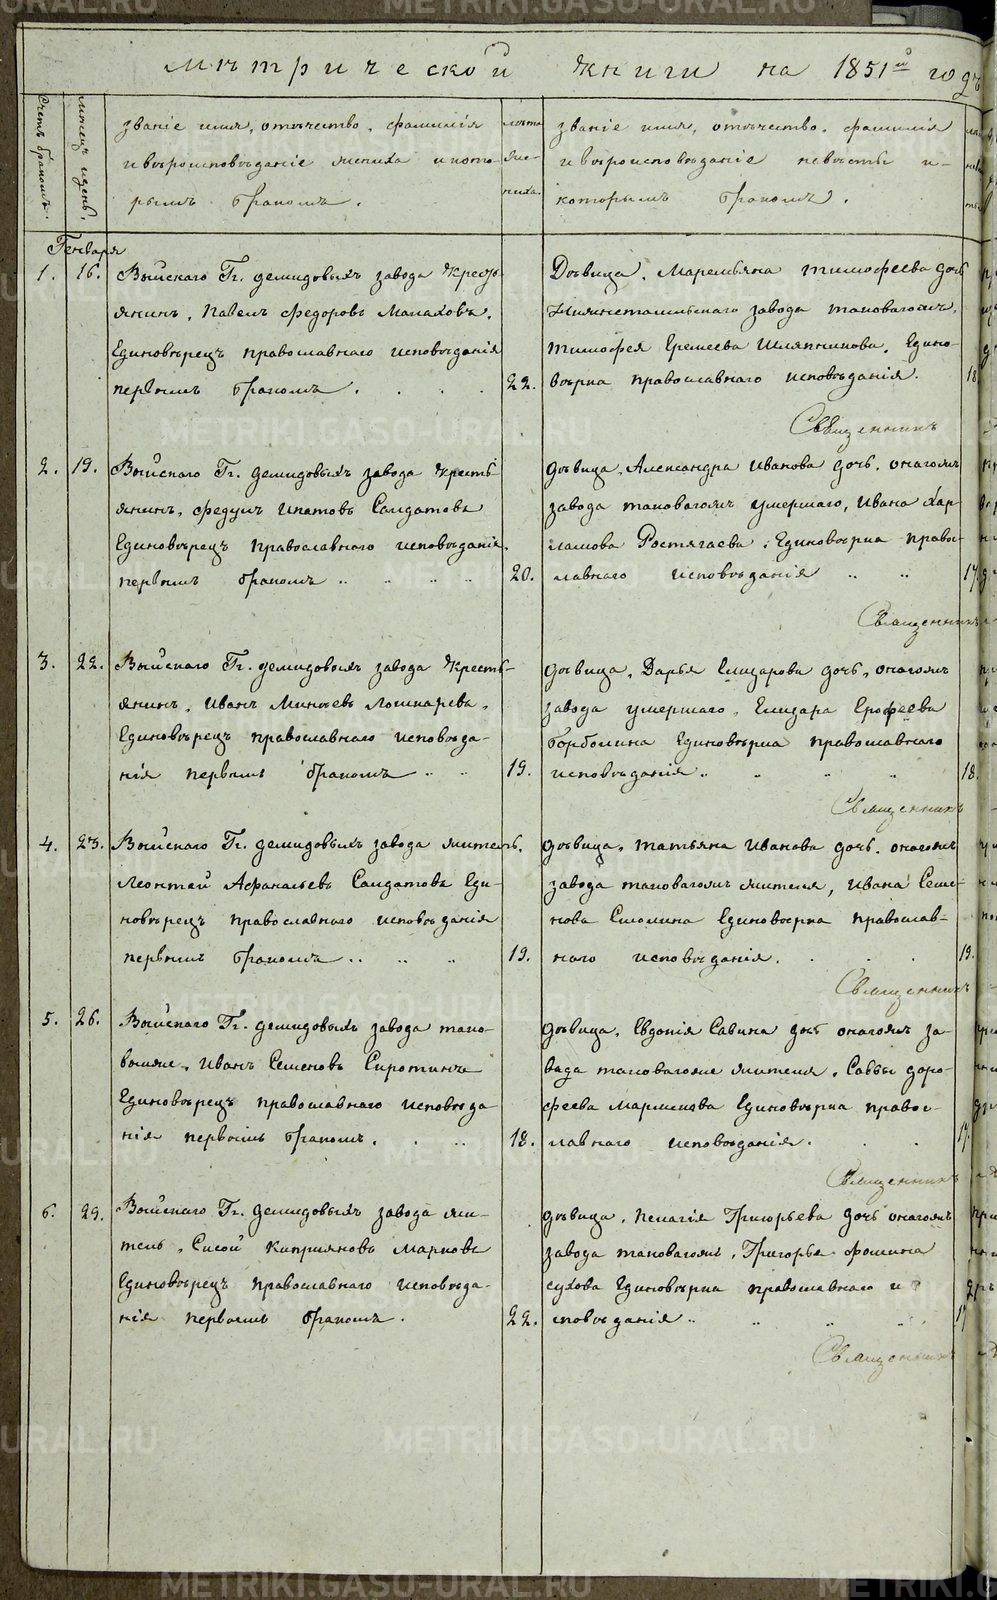 METRIKI.GASO-URAL.RU
Метрической книги на 1851й годъ
Счетъ браковъ.
Мѣсяцъ и день.
Званіе имя, отечество, фамилія
и вѣроисповѣданіе жениха и кото-
рымъ бракомъ.
Лѣта
же-
ниха.
Званіе имя, отечество, фамилія
и вѣроисповѣданіе невѣсты и
которымъ бракомъ.
Генваря
1. 16.
Выйскаго Гг. Демидовыхъ завода кресть-
янинъ, Павелъ Федоровъ Малаховъ,
Единовѣрецъ православнаго исповѣданія
первымъ бракомъ.
22.
Дѣвица, Маремьяна Тимофеева дочь
Нижнетагильскаго завода таковагожъ,
Тимофея Еремеева Шляпникова, Едино-
вѣрка православнаго исповѣданія.
18
Священникъ
2. 19.
Выйскаго Гг. Демидовыхъ завода кресть-
янинъ, Федулъ Ипатовъ Салдатовъ
Единовѣрецъ православнаго исповѣданія,
первымъ бракомъ
20.
Дѣвица, Александра Иванова дочь, онагожъ
завода таковагожъ умершаго, Ивана Хар-
ламова Ростягаева, Единовѣрка правос-
лавнаго исповѣданія
17.
Священникъ
3. 22.
Выйскаго Гг. Демидовыхъ завода кресть-
янинъ, Иванъ Минѣевъ Лошкарева,
Единовѣрецъ православнаго исповѣда-
нія первымъ бракомъ
19.
Дѣвица, Дарья Елизарова дочь, онагожъ
завода умершаго, Елизара Ерофеева
Барболина Единовѣрка православнаго
исповѣданія
18.
Священникъ
4. 23.
Выйскаго Гг. Демидовыхъ завода житель,
Леонтей Афанасьевъ Салдатовъ Еди-
новѣрецъ православнаго исповѣданія
первымъ бракомъ
19.
Дѣвица, Татьяна Иванова дочь, онагожъ
завода таковагожъ жителя, Ивана Семе-
нова Смолина Единовѣрка православ-
наго исповѣданія.
19.
Священникъ
5. 26.
Выйскаго Гг. Демидовыхъ завода тако-
выйже, Иванъ Семеновъ Сиротинъ
Единовѣрецъ православнаго исповѣда-
нія первымъ бракомъ.
18.
Дѣвица, Евдокія Савина дочь онагожъ за-
вода таковагоже жителя, Саввы Доро-
феева Единовѣрка правос-
лавнаго исповѣданія.
17.
Священникъ
6. 29.
Выйскаго Гг. Демидовыхъ завода жи-
тель, Сисой Киприяновъ Марковъ
Единовѣрецъ православнаго исповѣда-
нія первымъ бракомъ.
22.
Дѣвица, Пелагія Григорьева дочь онагожъ
завода таковагожъ, Григорья Фомина
Сухова Единовѣрка православнаго и
сповѣданія
17
Священникъ
METRIKI.GASO-URAL.RU